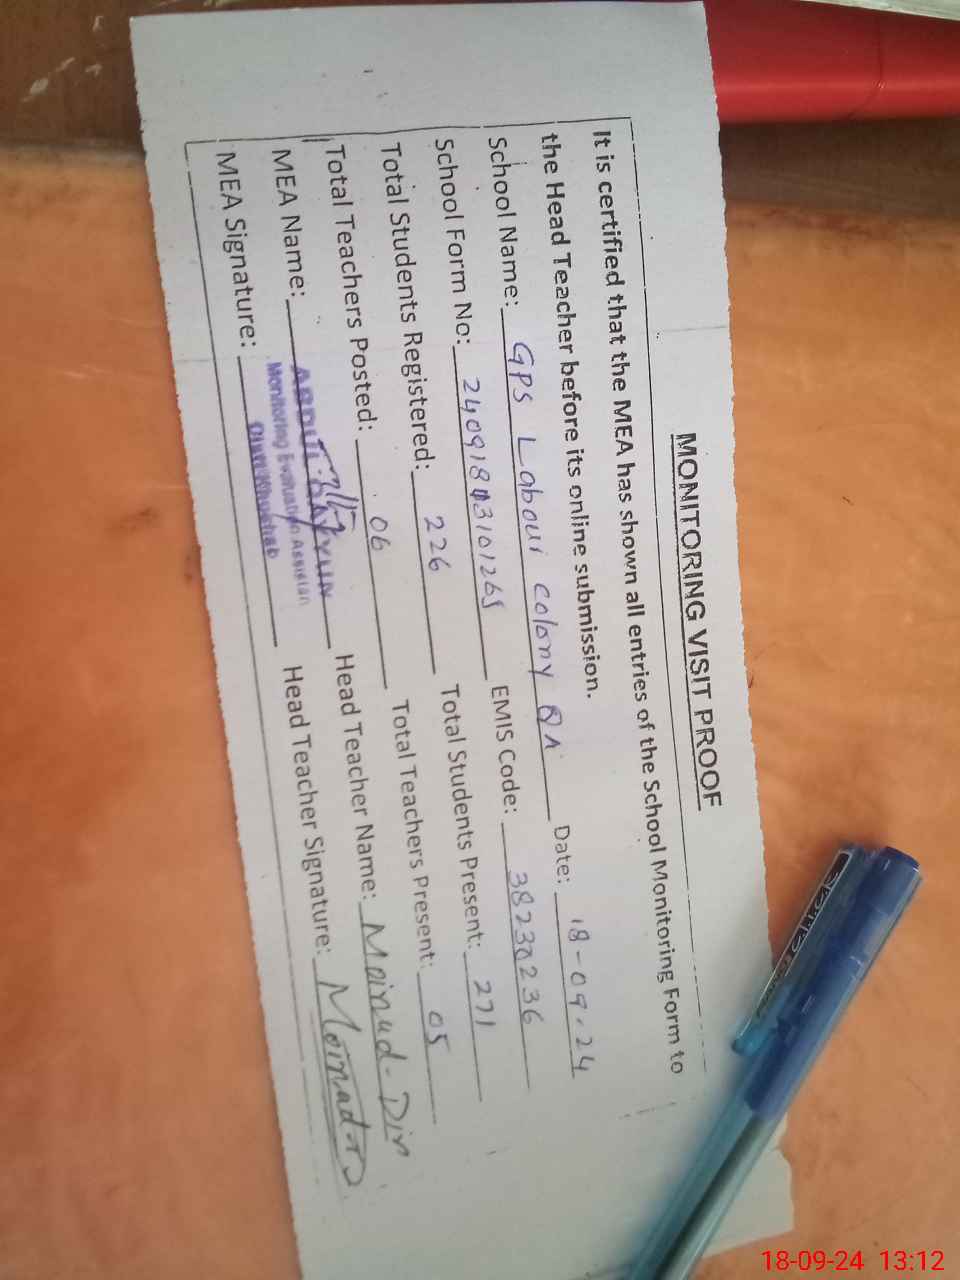 MONITORING VISIT PROOF
It is certified that the MEA has shown all entries of the School Monitoring Form to
the Head Teacher before its online submission.
School Name: GPS Labour Colony QA Date: 18-09-24
School Form No: EMIS Code: 38230236
Total Students Registered: 226 Total Students Present: 271
Total Teachers Posted: 06 Total Teachers Present: 05
MEA Name: Head Teacher Name: Moinud-Din
Monitoring Evaluation Assistan
MEA Signature: Head Teacher Signature:
18-09-24 13:12